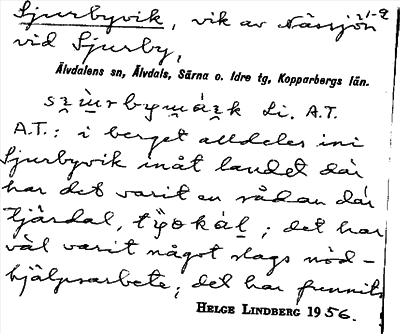 Sjurbyvik, vik av Nässjön
vid Sjurby,
Älvdalens sn, Älvdals, Särna o. Idre tg, Kopparbergs län.
Li. A.T.
A.T.: i berget alldeles ini
Sjurbyvik inåt landet där
har det varit en sådan där
tjärdal, ; det har
väl varit något slags nöd-
hjälpsarbete; det har funnits
HELGE LINDBERG 1956.